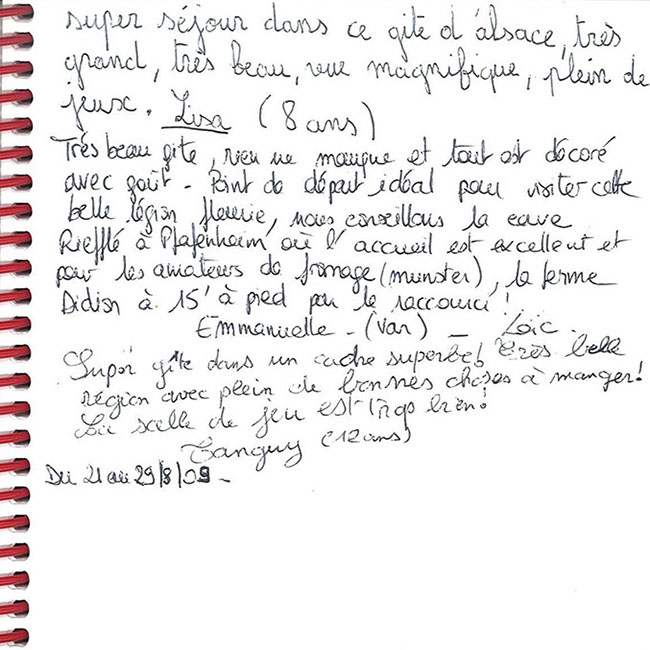 super séjour dans ce gîte d'alsace, très
grand, très beau, vue magnifique, plein de
jeux. Lisa (8 ans)
Très beau gîte, rien ne manque et tout est décoré
avec goût - Point de départ idéal pour visiter cette
belle région fleurie, nous conseillons la cave
Riefflé à Pfafenheim où l'accueil est excellent et
pour les amateurs de fromage (munster), la ferme
Didion à 15' à pied par le raccourci !
Emmanuelle - (Var) - Loïc.
Super gîte dans un cadre superbe! très belle
région avec plein de bonnes choses à manger!
La salle de jeu est trop bien!
Tanguy (12 ans)
Du 21 au 29/8/09 -